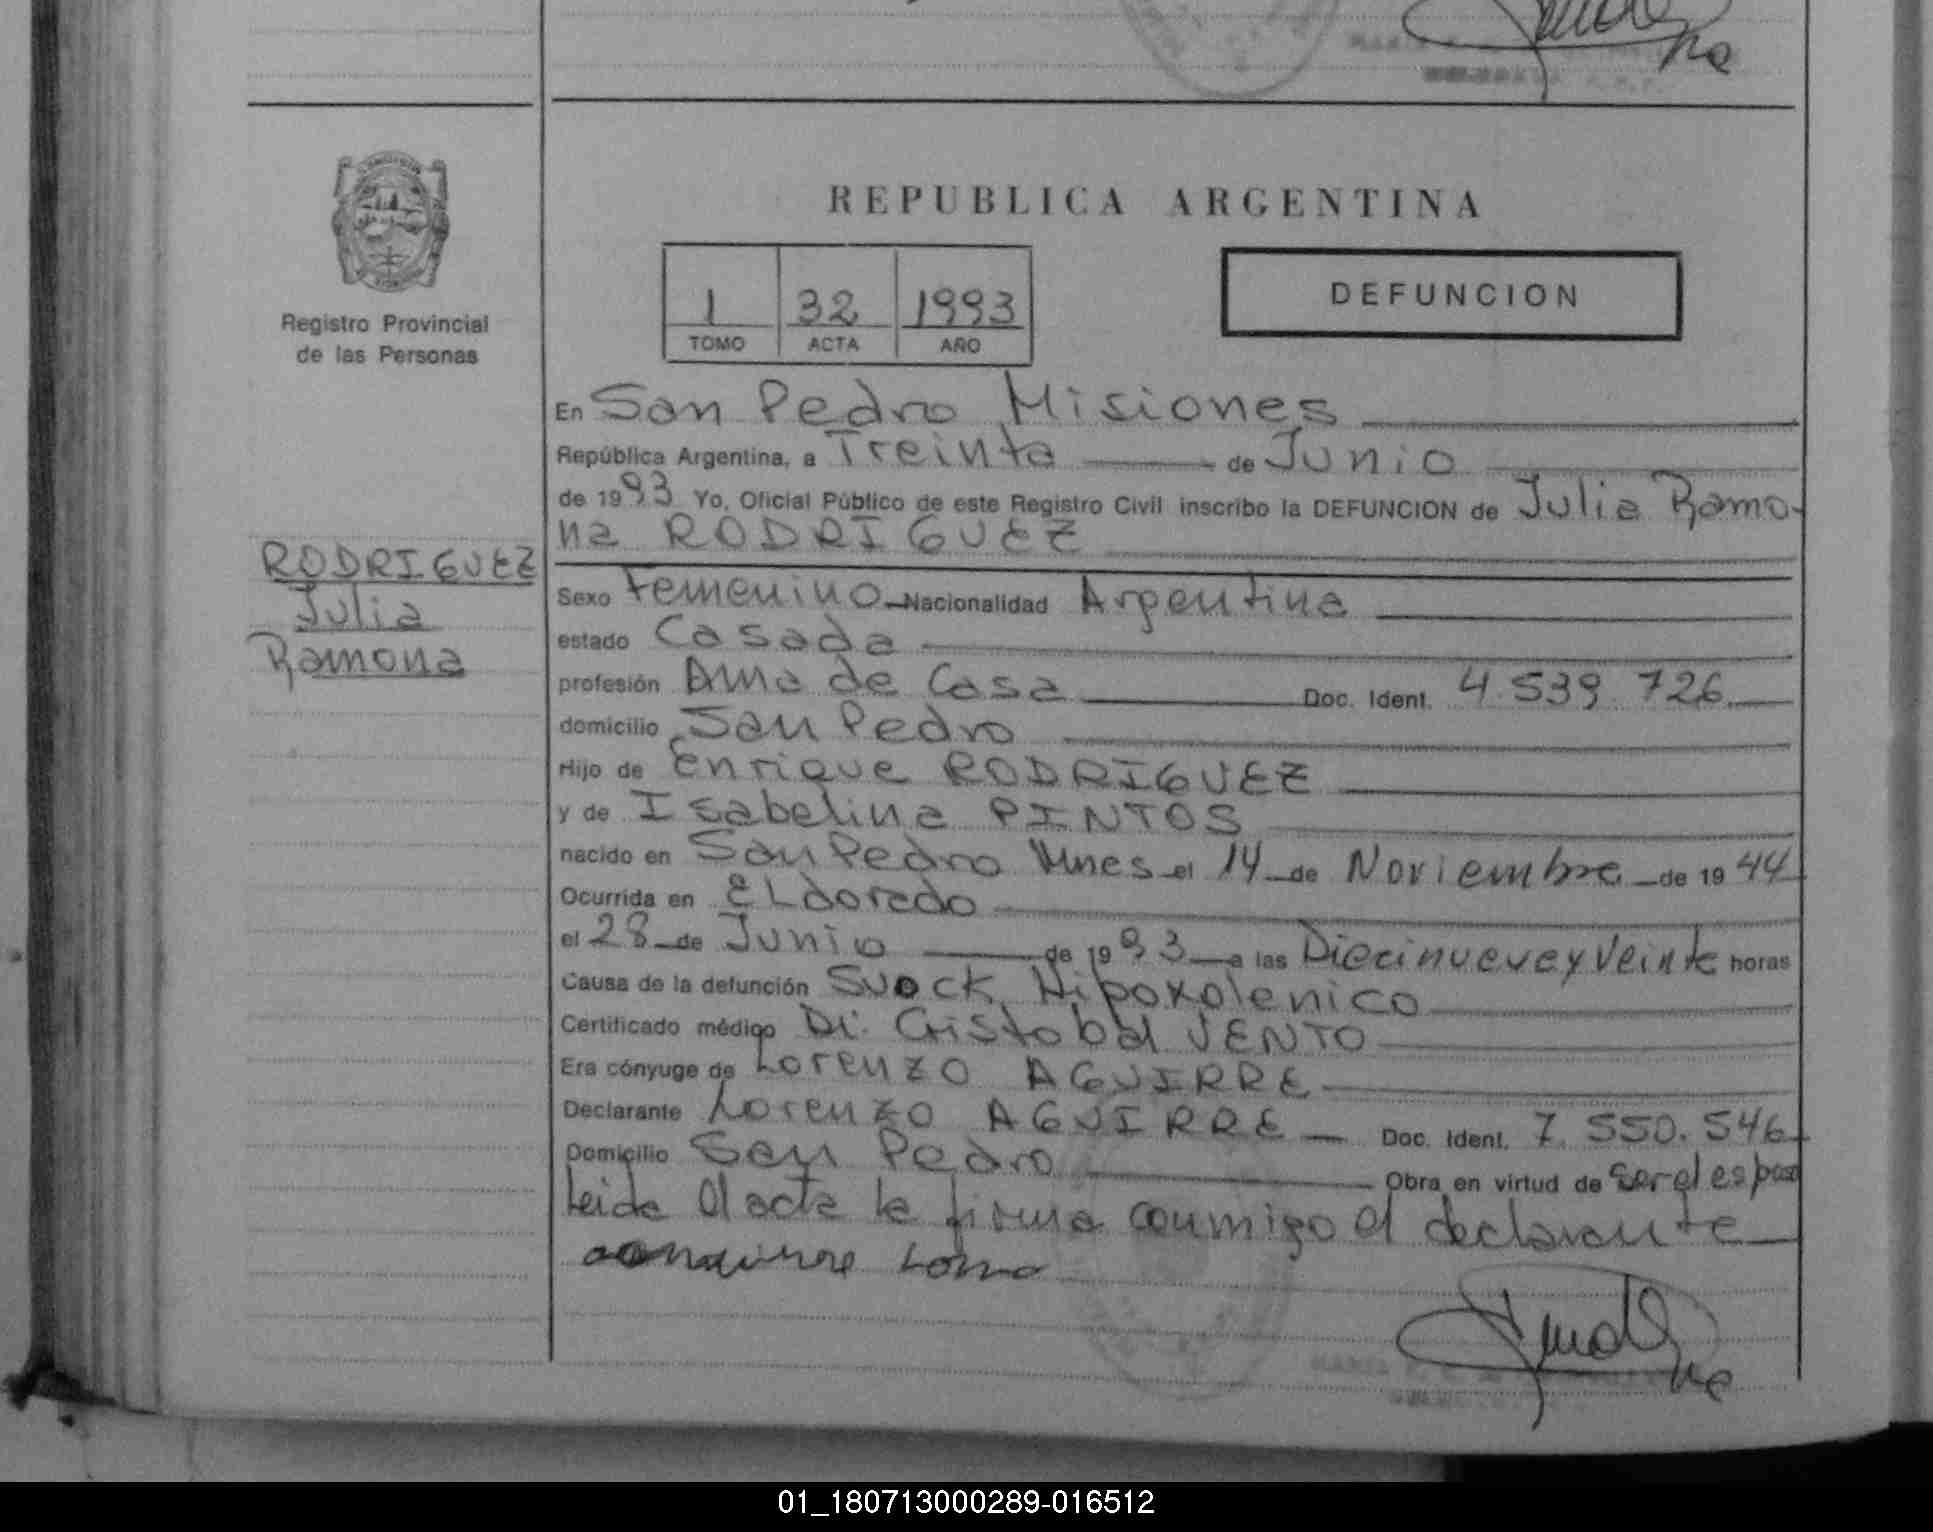 REPUBLICA ARGENTINA
Registro Provincial
de las Personas
1 32 1993
TOMO ACTA AÑO
DEFUNCION
En San Pedro Misiones
República Argentina, a Treinta de Junio
de 1993 Yo, Oficial Público de este Registro Civil inscribo la DEFUNCION de Julia Ramo-
na RODRIGUEZ
RODRIGUEZ
Julia
Ramona
Sexo Femenino Nacionalidad Argentina
estado Casada
profesión Ama de Casa Doc. Ident. 4.539.726
domicilio San Pedro
Hijo de Enrique RODRIGUEZ
y de Isabelina PINTOS
nacido en San Pedro Mnes el 14 de Noviembre de 1944
Ocurrida en ELdorado
el 28 de Junio de 1993 a las Diecinueve y Veinte horas
Causa de la defunción Shock Hipoxolenico
Certificado médico Dr. Cristobal VENTO
Era cónyuge de Lorenzo AGUIRRE
Declarante Lorenzo AGUIRRE Doc. Ident. 7.550.546
Domicilio San Pedro Obra en virtud de ser el esposo
Leida el acta la firma conmigo el declarante
01_180713000289-016512